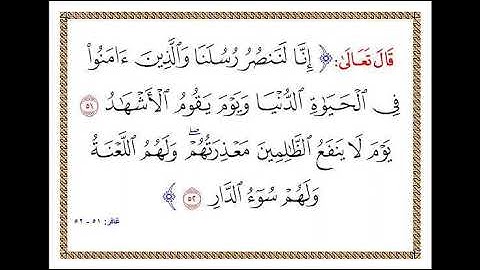 قَالَ تَعَالَىٰ: ﴿ إِنَّا لَنَنصُرُ رُسُلَنَا وَٱلَّذِينَ ءَامَنُوا۟
فِي ٱلْحَيَوٰةِ ٱلدُّنْيَا وَيَوْمَ يَقُومُ ٱلْأَشْهَٰدُ ٥١
يَوْمَ لَا يَنفَعُ ٱلظَّٰلِمِينَ مَعْذِرَتُهُمْ ۖ وَلَهُمُ ٱللَّعْنَةُ
وَلَهُمْ سُوٓءُ ٱلدَّارِ ٥٢ ﴾
غافر: ٥١ - ٥٢